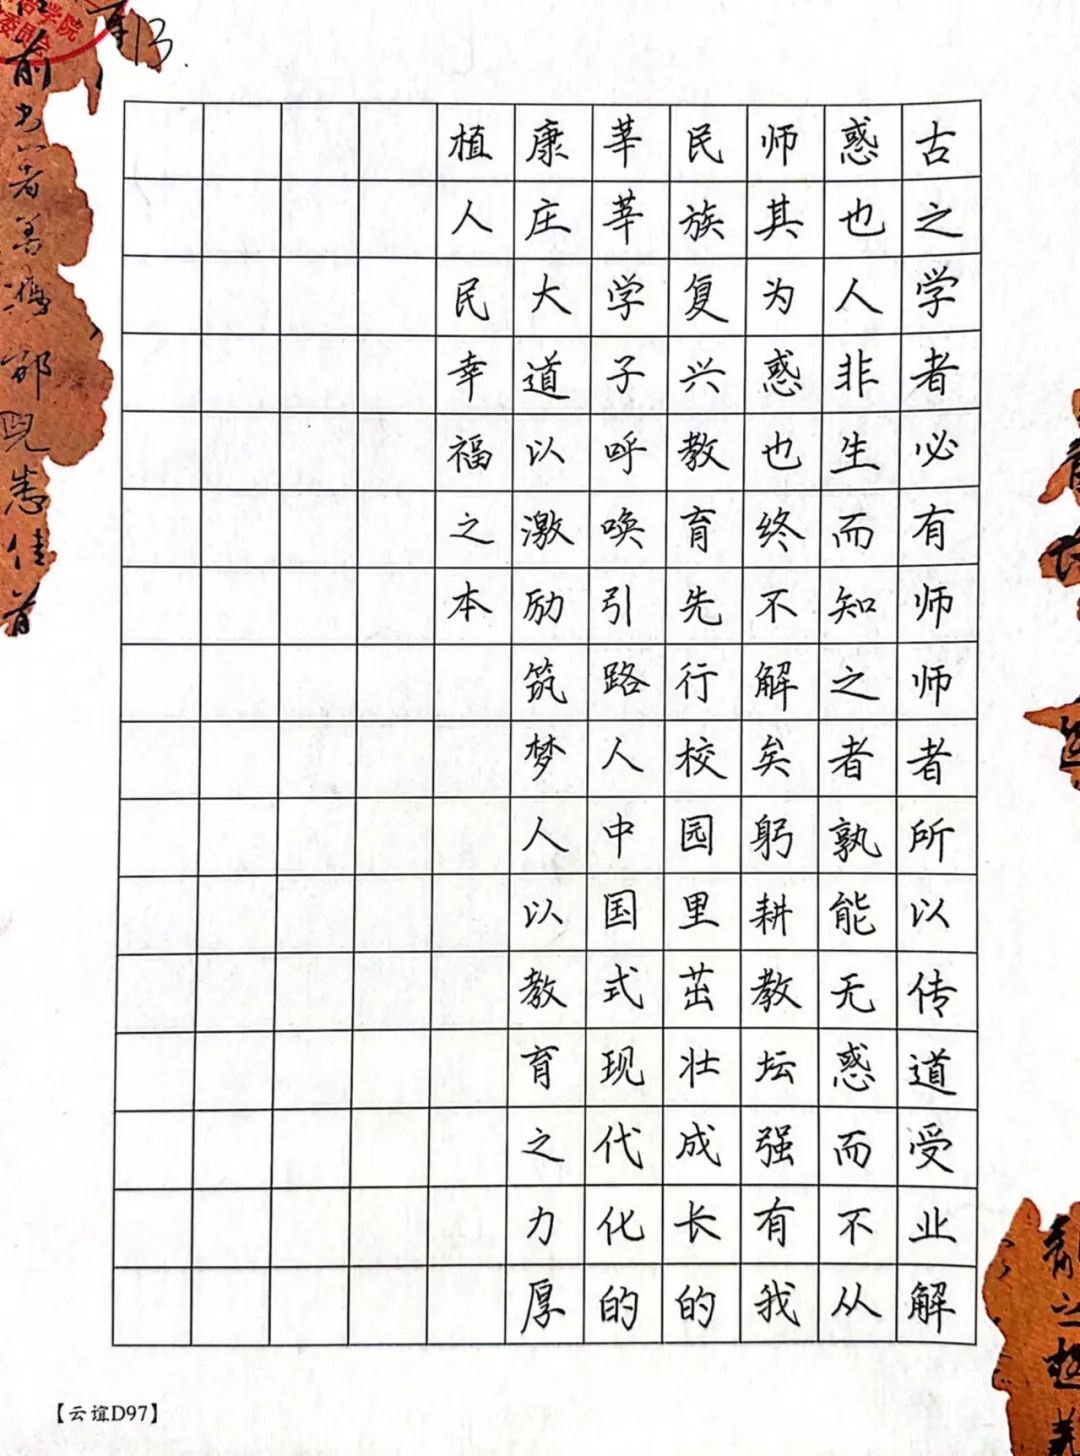 古之学者必有师师者所以传道受业解
惑也人非生而知之者孰能无惑而不从
师其为惑也终不解矣躬耕教坛强有我
民族复兴教育先行校园里茁壮成长的
莘莘学子呼唤引路人中国式现代化的
康庄大道以激励筑梦人以教育之力厚
植人民幸福之本
13.
前
部
佳
【云谊D97】